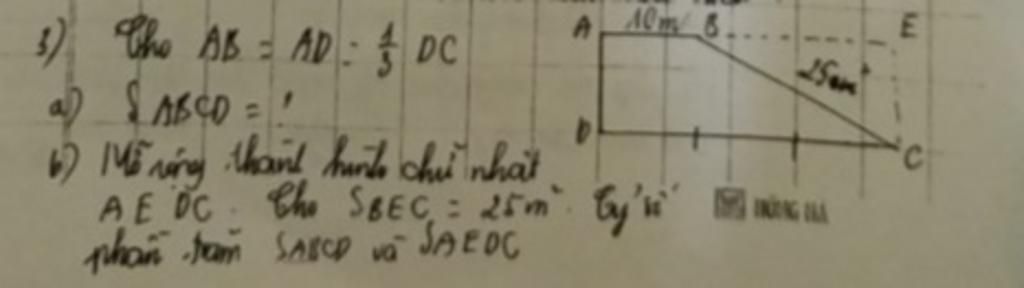 3) Cho AB = AD = 1/3 DC
a) S ABCD = ?
b) Mở rộng thành hình chữ nhật
AEDC. Cho SBEC = 25m². Tỷ số
phần trăm SABCD và SAEDC
A 10m B E
25m²
D C